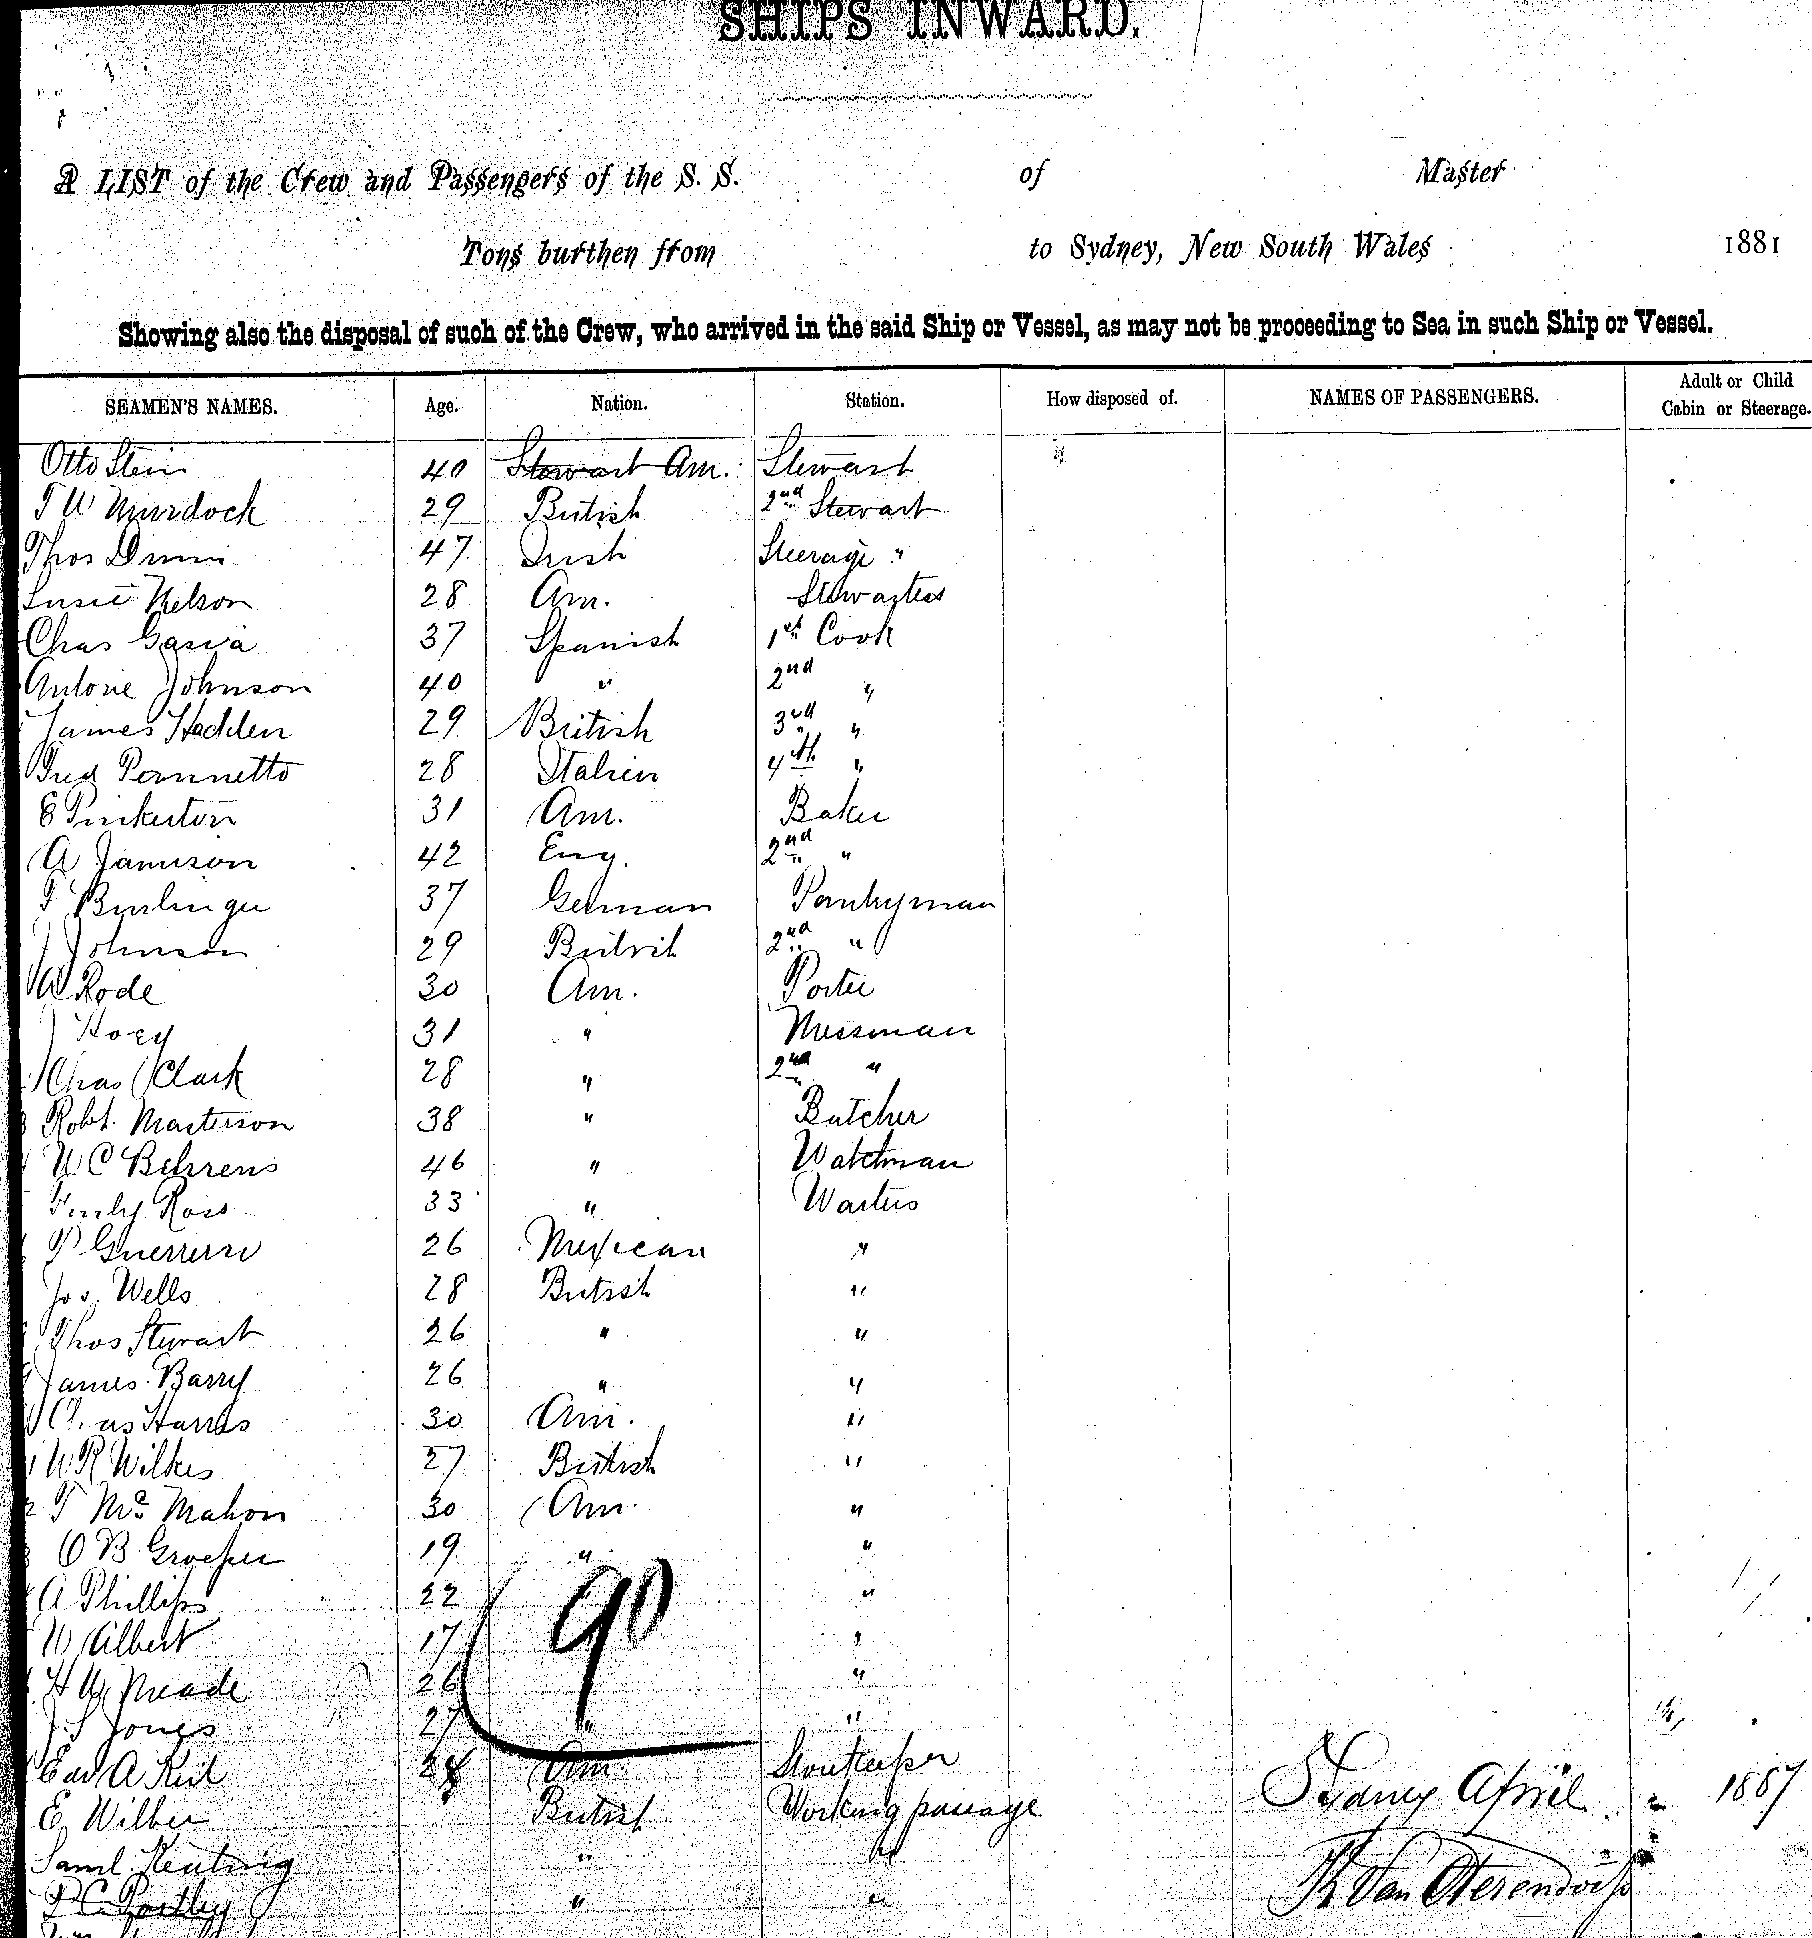 SHIPS INWARD.
A LIST of the Crew and Passengers of the S. S. of Master
Tons burthen from to Sydney, New South Wales 1881
Showing also the disposal of such of the Crew, who arrived in the said Ship or Vessel, as may not be proceeding to Sea in such Ship or Vessel.
SEAMEN'S NAMES. Age. Nation. Station. How disposed of. NAMES OF PASSENGERS. Adult or Child Cabin or Steerage.
Otto Stein 40 Stewart Am. Stewart
T W Murdock 29 British 2nd Stewart
Thos Dunn 47 Irish Steerage "
Susie Nelson 28 Am. Stewartess
Chas Garcia 37 Spanish 1st Cook
Antone Johnson 40 " 2nd "
James Hadden 29 British 3rd "
Fred 28 Italien 4th "
E Pinkerton 31 Am. Baker
A Jamison 42 Eng. 2nd "
F 37 German Pantryman
J Johnson 29 British 2nd "
W Rode 30 Am. Porter
J Hoey 31 " Messman
Chas Clark 28 " 2nd "
Robt. Masterson 38 " Butcher
W C Behrens 46 " Watchman
Ross 33 " Waiters
P Guerrero 26 Mexican "
Jos. Wells 28 British "
Thos Stewart 26 " "
James Barry 26 " "
Chas Harris 30 Am. "
W R Wilkes 27 British "
T McMahon 30 Am. "
O B 19 " "
A Phillips 22 "
W Albert 17 "
90
H W Meade 26 "
J S Jones 27 " "
Edw A Keil 28 Am Storekeeper
Sydney April " 1887
E Wilber British Working passage
Saml Keating " "
P C Portley " "